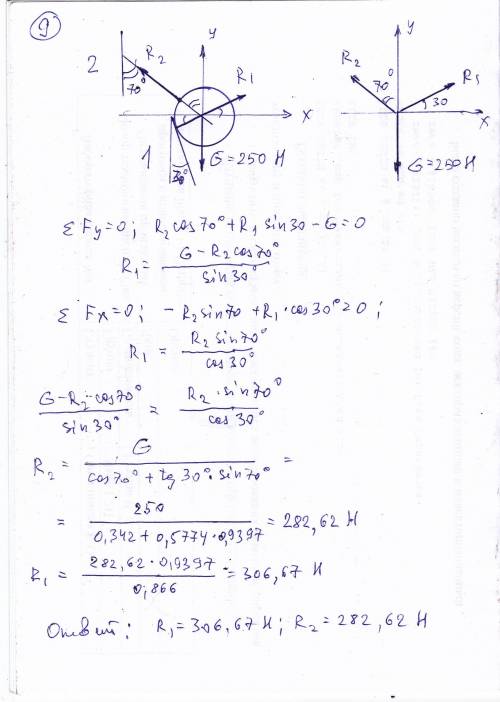 9)
2 R₂ 70° y R₁ x 1 30° G=250 H
y R₂ 70° R₁ 30 x G=250H
ΣFy=0; R₂cos70°+R₁ sin30-G=0
R₁= (G-R₂cos70°)/(sin30°)
ΣFx=0; -R₂sin70+R₁·cos30°=0;
R₁= (R₂sin70°)/(cos30°)
(G-R₂·cos70°)/(sin30°) = (R₂·sin70°)/(cos30°)
R₂ = G/(cos70°+tg30°·sin70°) =
= 250/(0,342+0,5774·0,9397) = 282,62 H
R₁ = (282,62·0,9397)/(0,866) = 306,67 H
Ответ: R₁=306,67H; R₂=282,62H